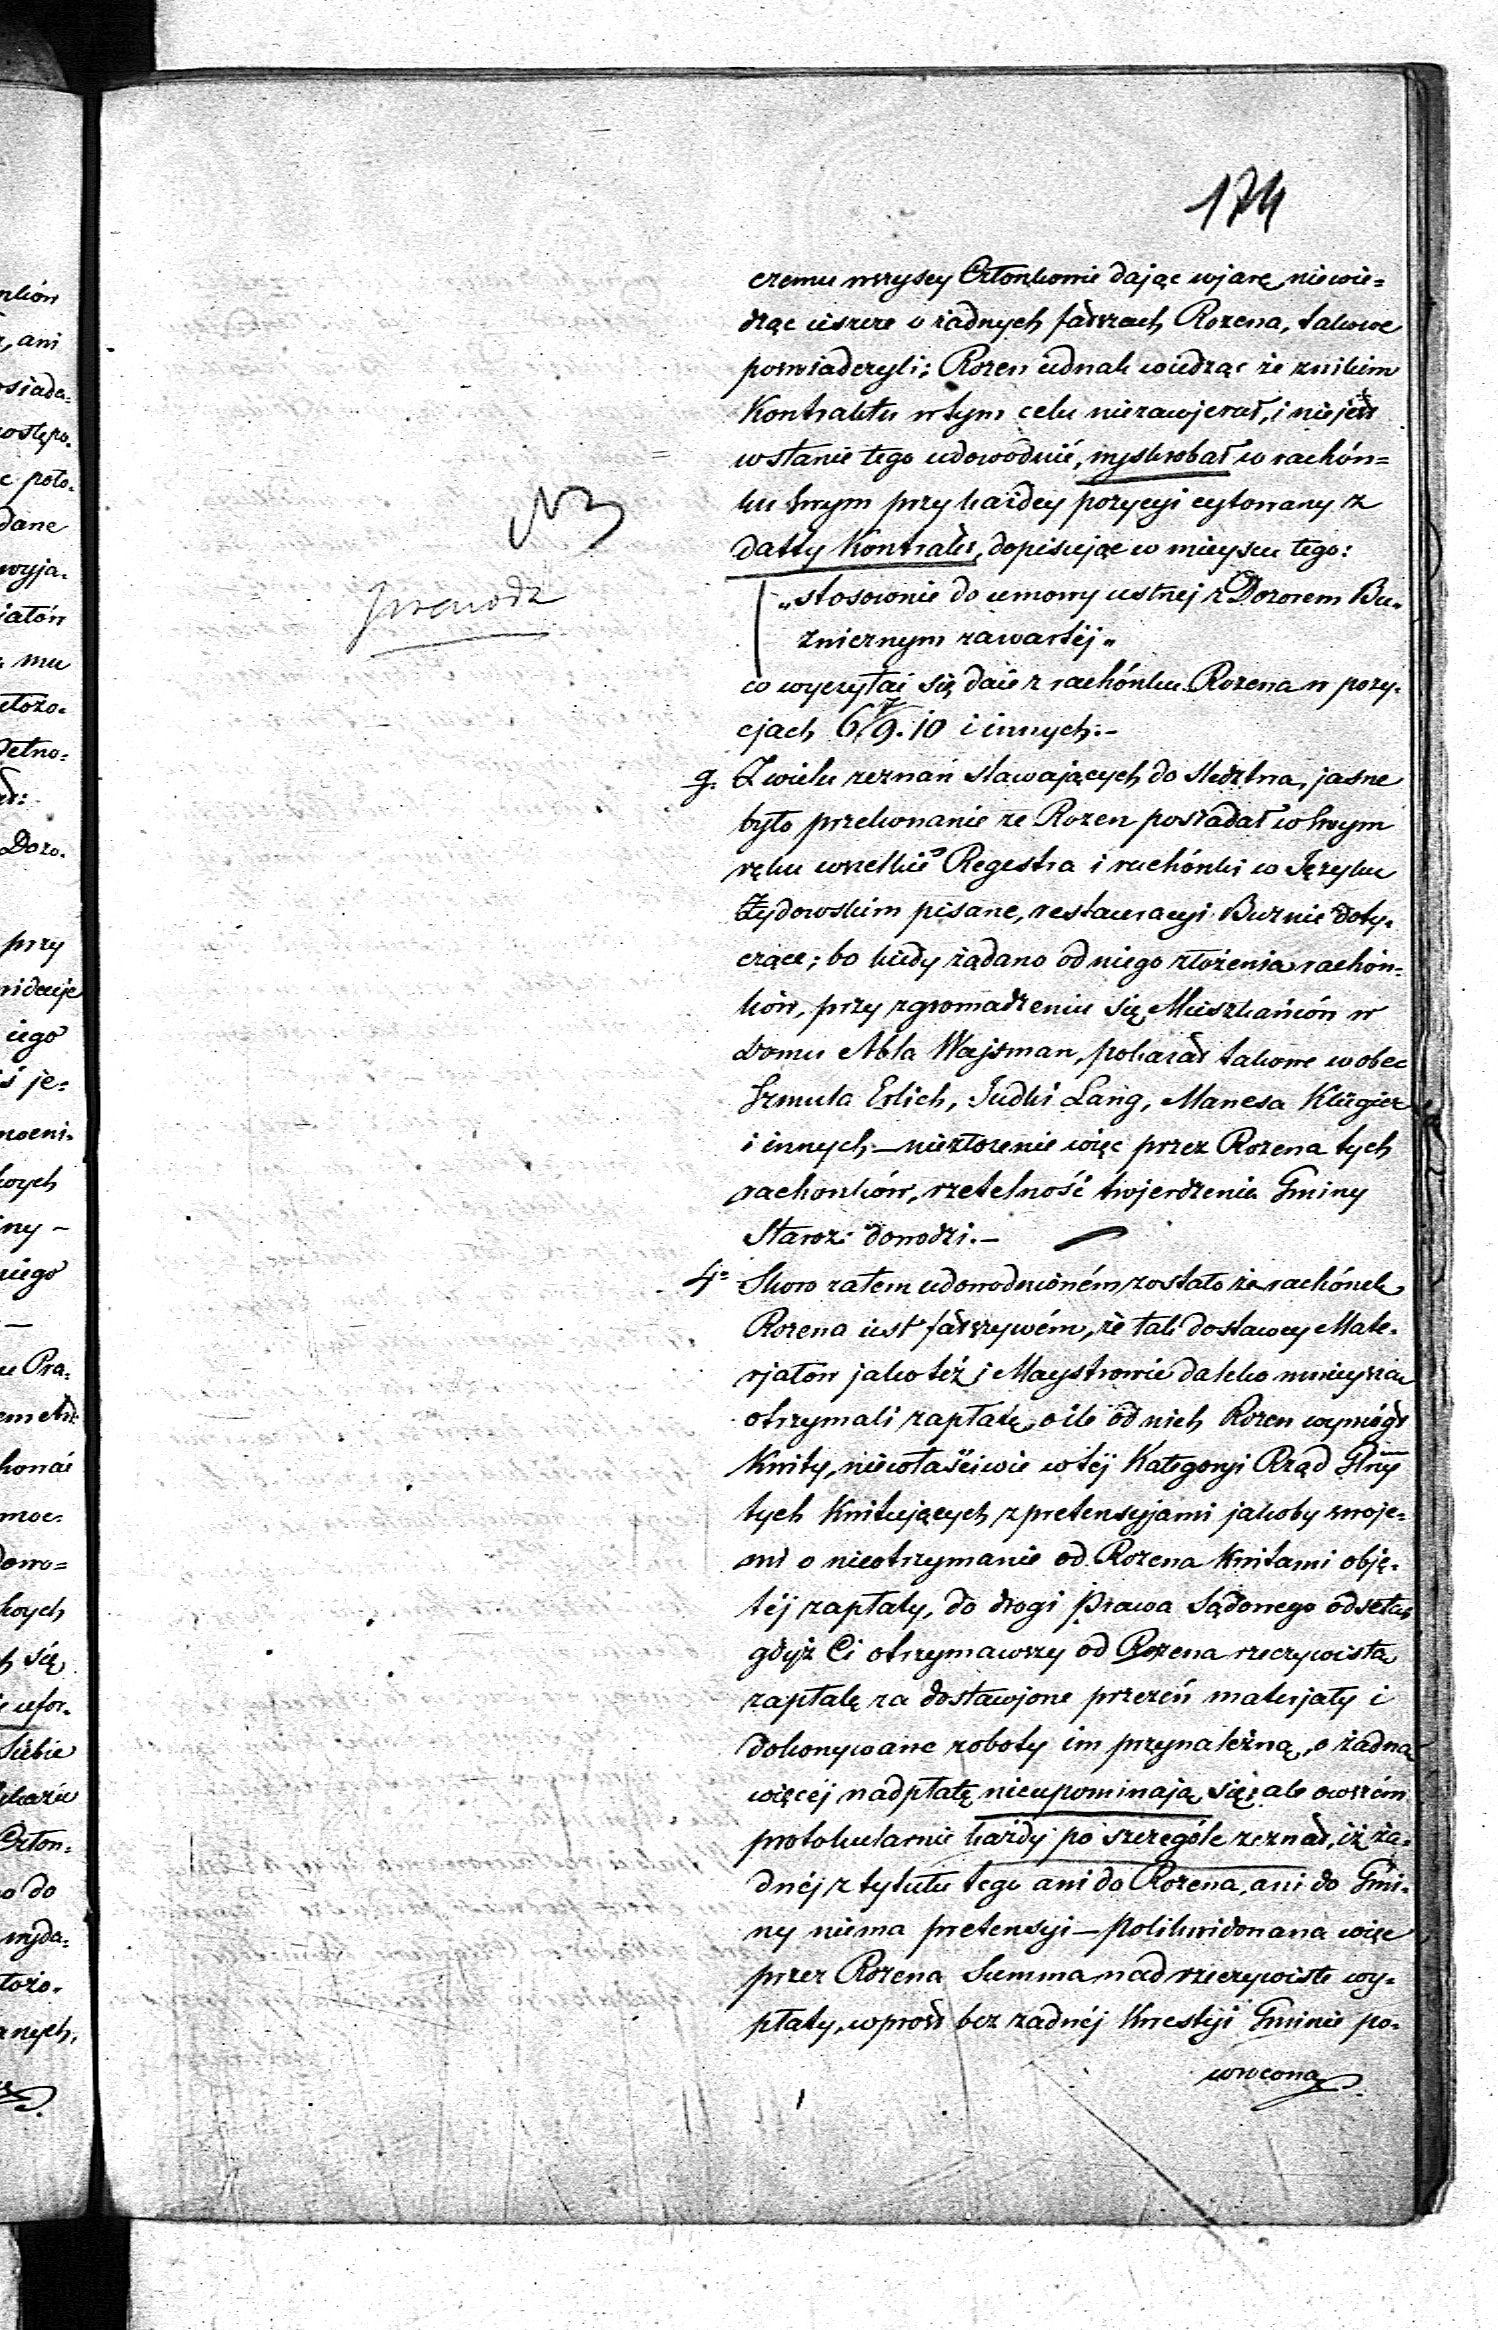 174
czemu wszyscy Członkowie dając wjarę, niewie=
dząc ieszcze o żadnych fałszach Rozena, takowe
poświadczyli; Rozen iednak wiedząc że znikim
Kontraktu w tym celu niezawjerał, i nie jest
wstanie tego udowodnić, wyskrobał w rachón=
ku swym przy każdey pozycyi cytowany z
datty Kontrakt, dopisując w mieyscu tego:
NB
prawda
„stosownie do umowy ustnej z Dozorem Bu„
żnicznym zawartéj„
co wyczytać się daie z rachónku Rozena w pozy„
cjach 6/7 9. 10 i innych.–
g. Z wielu zeznań stawających do śledztwa, jasne
było przekonanie że Rozen posiadał w swym
ręku wszelkie Regestra i rachónki w Języku
Żydowskim pisane, restauracyi Bużnic doty„
czące; bo kiedy żądano od niego złożenia rachón„
ków, przy zgromadzeniu się Mieszkańców w
domu Abla Wajsman, pokazał takowe wobec
Szmula Erlich, Judki Lang, Manesa Klugier
i innych – niezłożenie więc przez Rozena tych
rachonków, rzetelność twjerdzenia Gminy
Staroz: dowodzi.–
4o Skoro zatem udowodnioném zostało że rachónek
Rozena iest fałszywém, że tak dostawcy Mate„
rjałów jako też i Maystrowie daleko mnieysze
otrzymali zapłatę, o ile od nich Rozen wymógł
Kwity, niewłaściwie w téj Kategoryi Rząd Glny
tych Kwitujących z pretensyjami jakoby swoje„
mi o nieotrzymanie od Rozena Kwitami obję„
téj zapłaty, do drogi Prawa Sądowego odsełał
gdyż Ci otrzymawszy od Rozena rzeczywistą
zapłatę za dostawjone przezeń materjały i
dokonywane roboty im przynależną, o żadną
więcéj nadpłatę nieupominają się; ale owszém
protokularnie każdy po szczególe zeznał, iż ża„
dnéj z tytułu tego ani do Rozena, ani do Gmi„
ny niema pretensyi – Polikwidowana więc
przez Rozena Summa nad rzeczywiste wy„
płaty, wprost bez żadnéj Kwestyi Gminie po„
wrócona